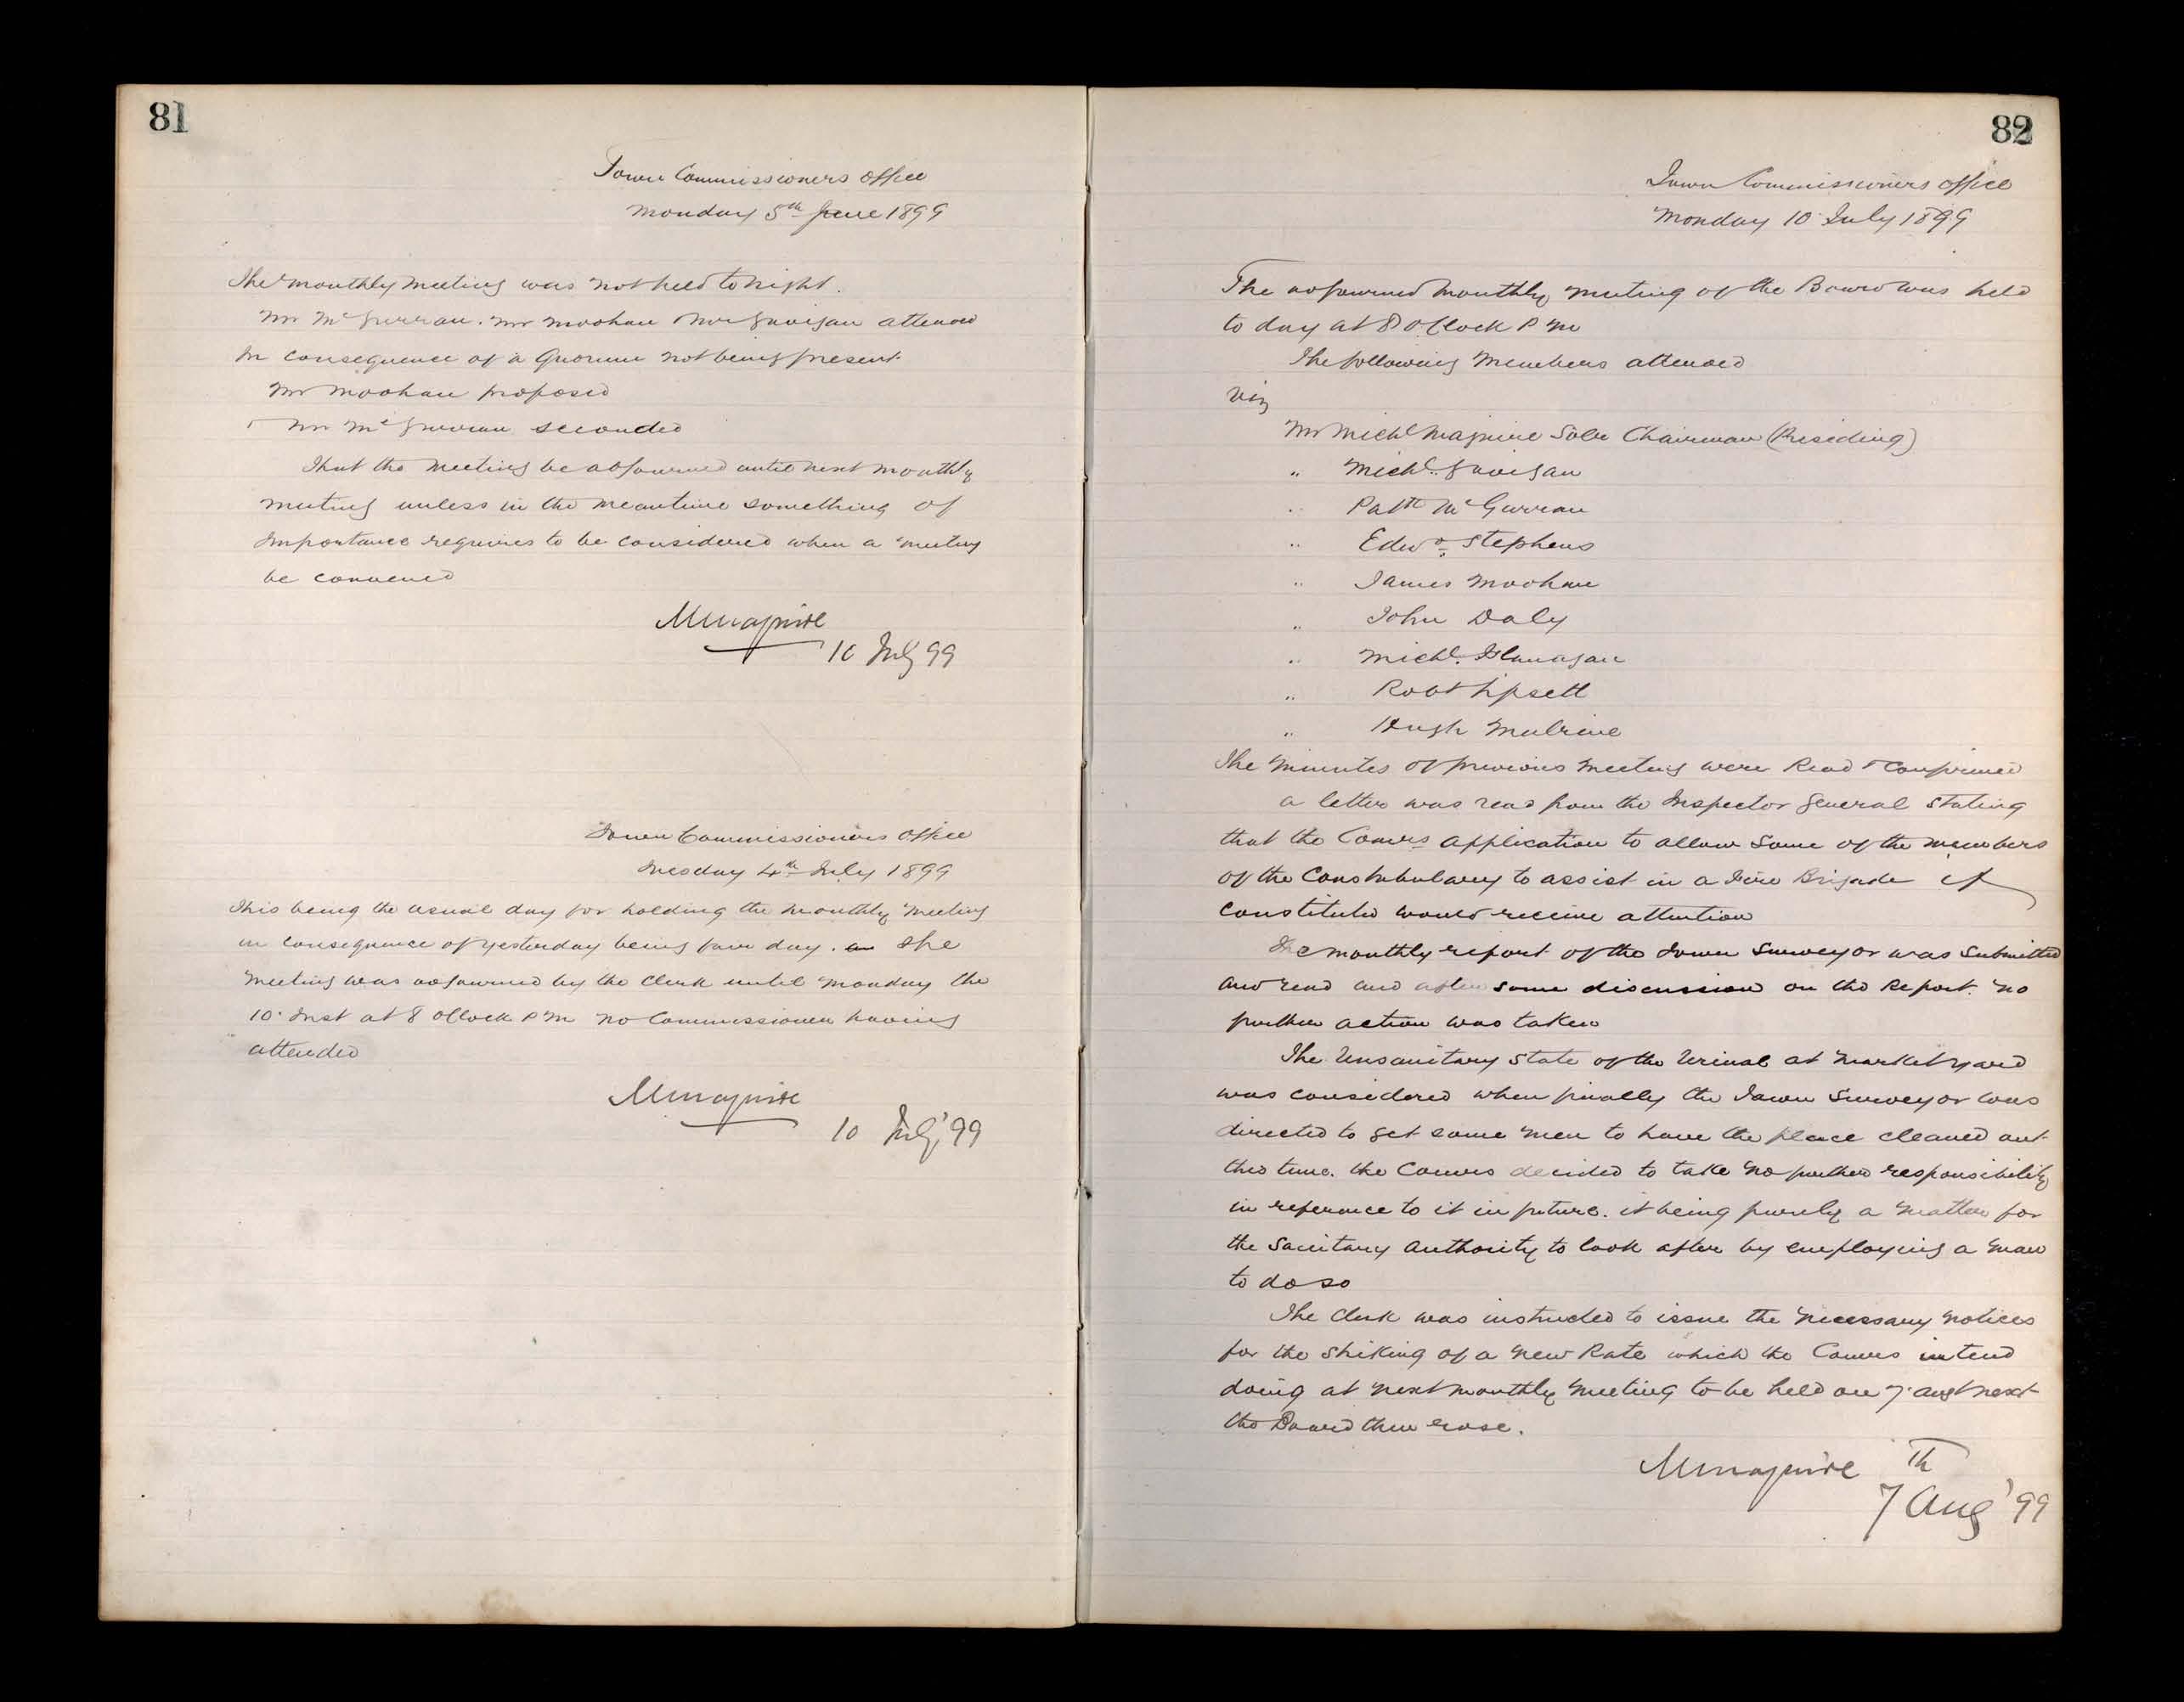 81
Town Commissioners Office
Monday 5th June 1899
The monthly meeting was not held to night.
Mr McGurran. Mr Moohan Mr Gavigan attended
In consequence of a Quorum not being present
Mr Moohan proposed
Mr McGurran seconded
That the meeting be adjourned until next monthly
meeting unless in the meantime something of
importance requires to be considered when a meeting
be convened
MMaguire
10 July 99
Town Commissioners Office
Tuesday 4th July 1899
This being the usual day for holding the monthly meeting
in consequence of yesterday being fair day. The
meeting was adjourned by the Clerk until Monday the
10. Inst at 8 oClock P M no Commissioner having
attended
MMaguire
10 July '99
82
Town Commissioners Office
Monday 10 July 1899
The adjourned monthly meeting of the Board was held
to day at 8 oClock P M
The following Members attended
Viz
Mr Michl Maguire Solr Chairman (Presiding)
" Michl. Gavigan
" Patk McGurran
" Edwd Stephens
" James Moohan
" John Daly
" Michl. Flanagan
" Robt Lipsett
" Hugh Mulrine
The minutes of previous meeting were Read & Confirmed
a letter was read from the Inspector General stating
that the Comrs application to allow some of the members
of the Constabulary to assist in a Fire Brigade if
constituted would receive attention
The monthly report of the Town Surveyor was submitted
and read and after some discussion on the Report. no
further action was taken
The Unsanitary state of the Urinal at Market yard
was considered when finally the Town Surveyor was
directed to get some men to have the place cleaned out
this time. the Comrs decided to take no further responsibility
in reference to it in future. it being purely a matter for
the Sanitary Authority to look after by employing a man
to do so
The Clerk was instructed to issue the necessary notices
for the striking of a new Rate which the Comrs intend
doing at next monthly meeting to be held on 7. Augt next
the Board then rose.
MMaguire
7th Aug '99